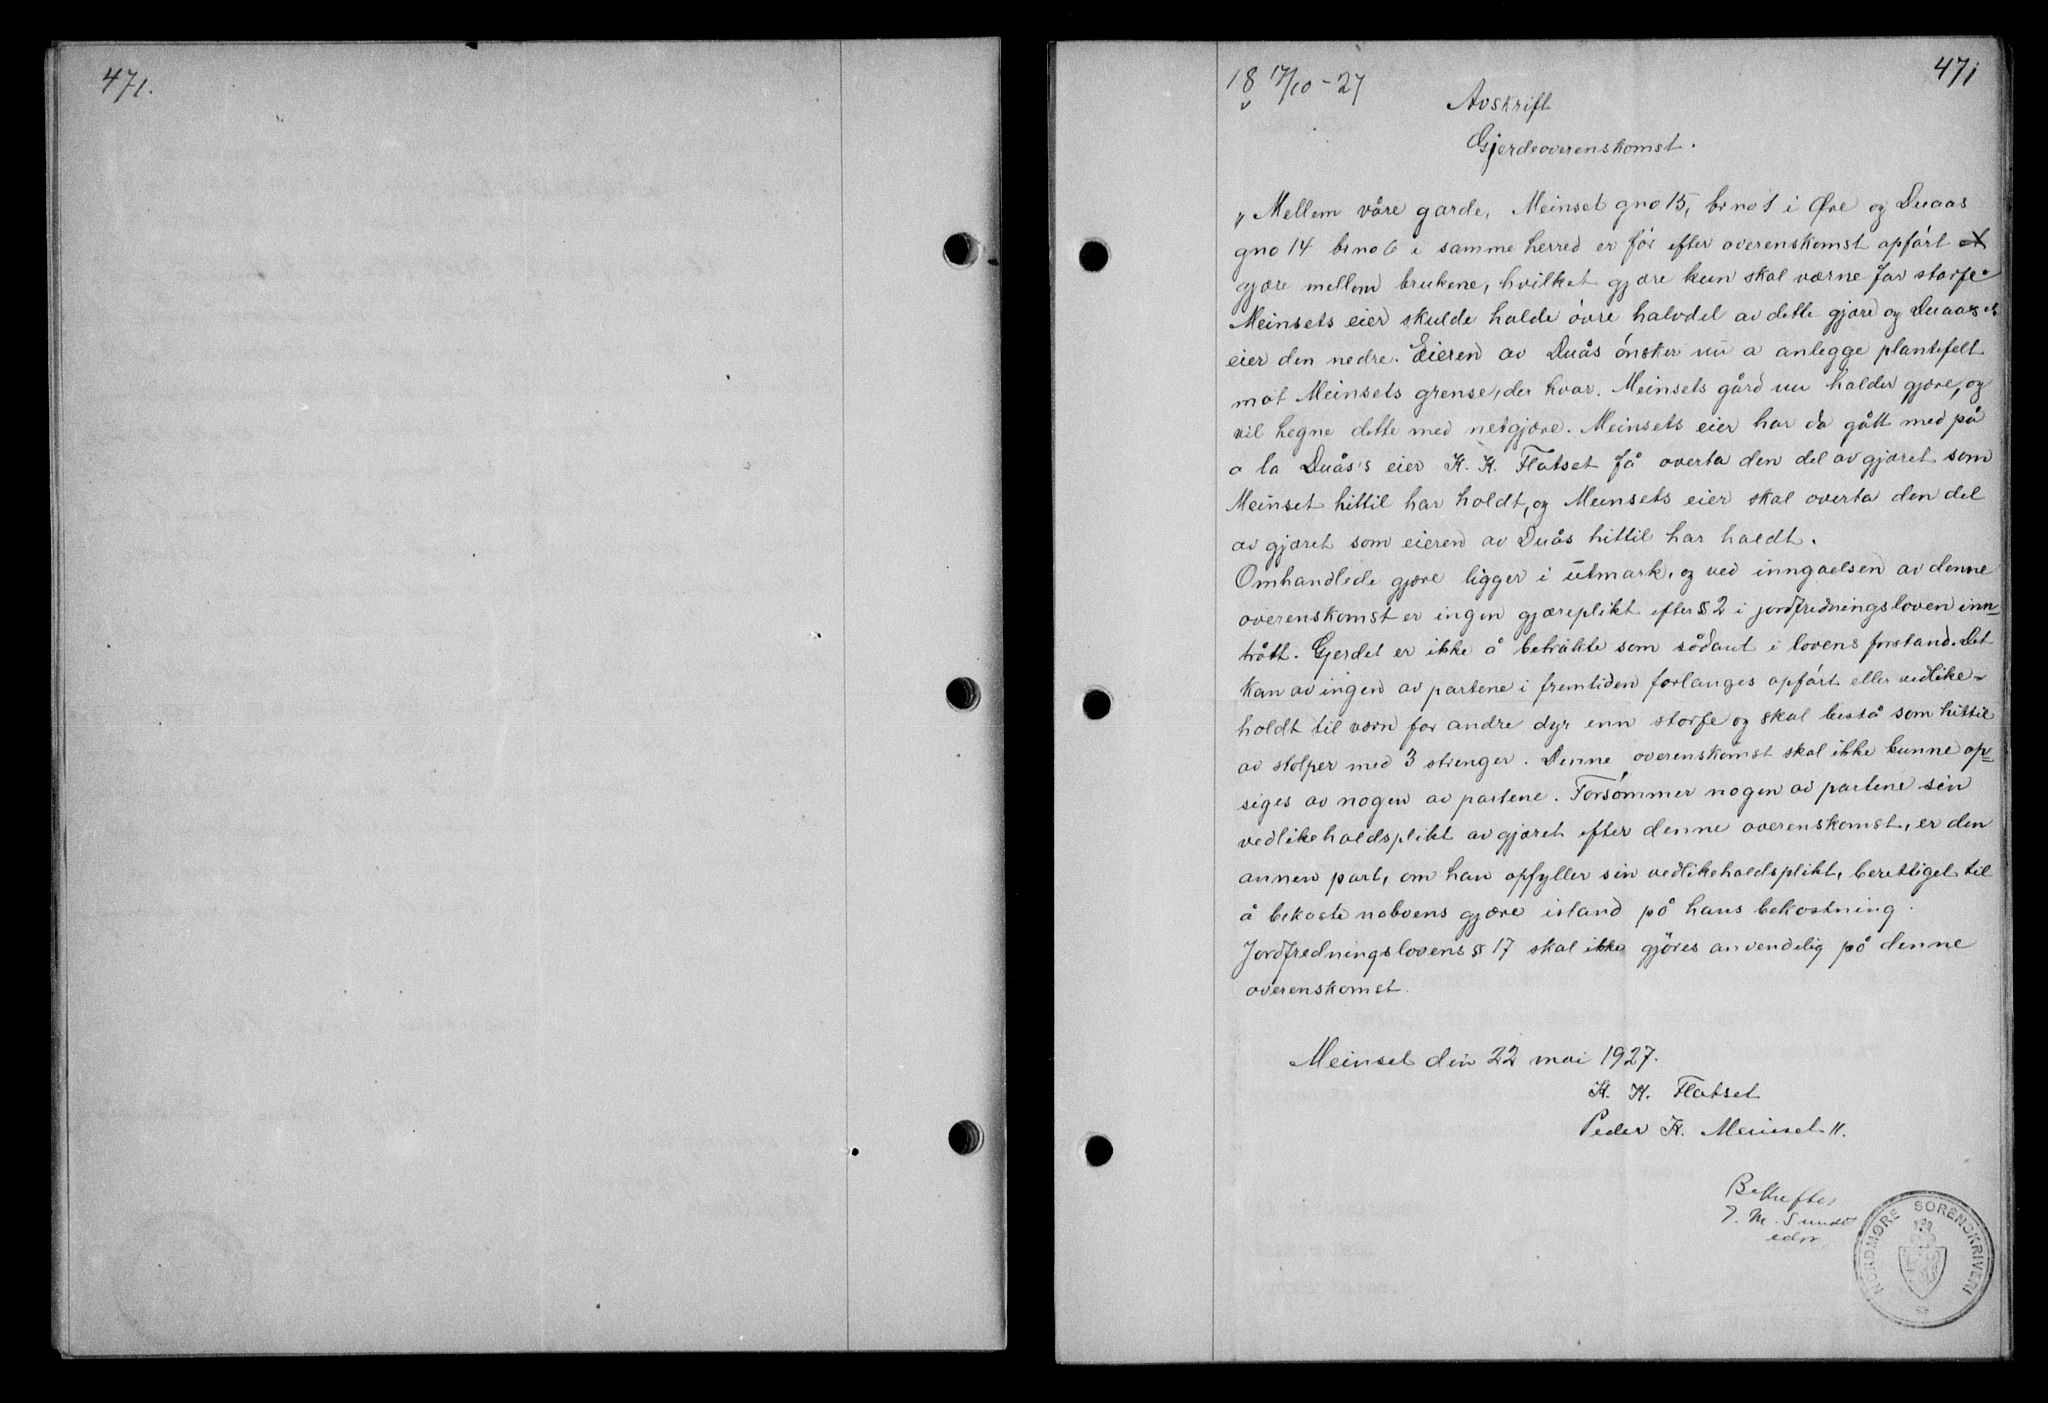 471.
471
18 17/10 - 27
Avskrift
Gjerdeoverenskomst.
„Mellem våre garde, Meinset gno 15, brno 1 i Øre og Duaas
gno 14 brno 6 i samme herred er før efter overenskomst opført et
gjære mellem brukene, hvilket gjære kun skal værne for storfe.
Meinsets eier skulde holde övre halvdel av dette gjære og Duaases
eier den nedre. Eieren av Duås ónsker nu a anlegge plantefelt
mot Meinsets grense, der hvor Meinsets gård nu holder gjære, og
vil hegne dette med netgjære. Meinsets eier har da gått med på
a la Duås's eier K. K. Flatset få overta den del av gjæret som
Meinset hittil har holdt, og Meinsets eier skal overta den del
av gjæret som eieren av Duås hittil har holdt.
Omhandlede gjære ligger i utmark, og ved inngaelsen av denne
overenskomst er ingen gjæreplikt efter § 2 i jordfredningsloven inn-
trått. Gjerdet er ikke å betrakte som sådant i lovens forstand. Det
kan av ingen av partene i fremtiden forlanges opført eller vedlike-
holdt til værn for andre dyr enn storfe og skal bestå som hittil
av stolper med 3 strenger. Denne overenskomst skal ikke kunne op-
siges av nogen av partene. Forsömmer nogen av partene sin
vedlikeholdsplikt av gjæret efter denne overenskomst, er den
annen part, om han opfyller sin vedlikeholdsplikt, berettiget til
å bekoste naboens gjære istand på hans bekostning.
Jordfredningslovens § 17 skal ikke gjöres anvendelig på denne
overenskomst.
Meinset den 22 mai 1927.
K. K. Flatset
Peder K. Meinset".
Bekreftes
J. M. Sundt
edsv.
NORDMØRE SORENSKRIVERI